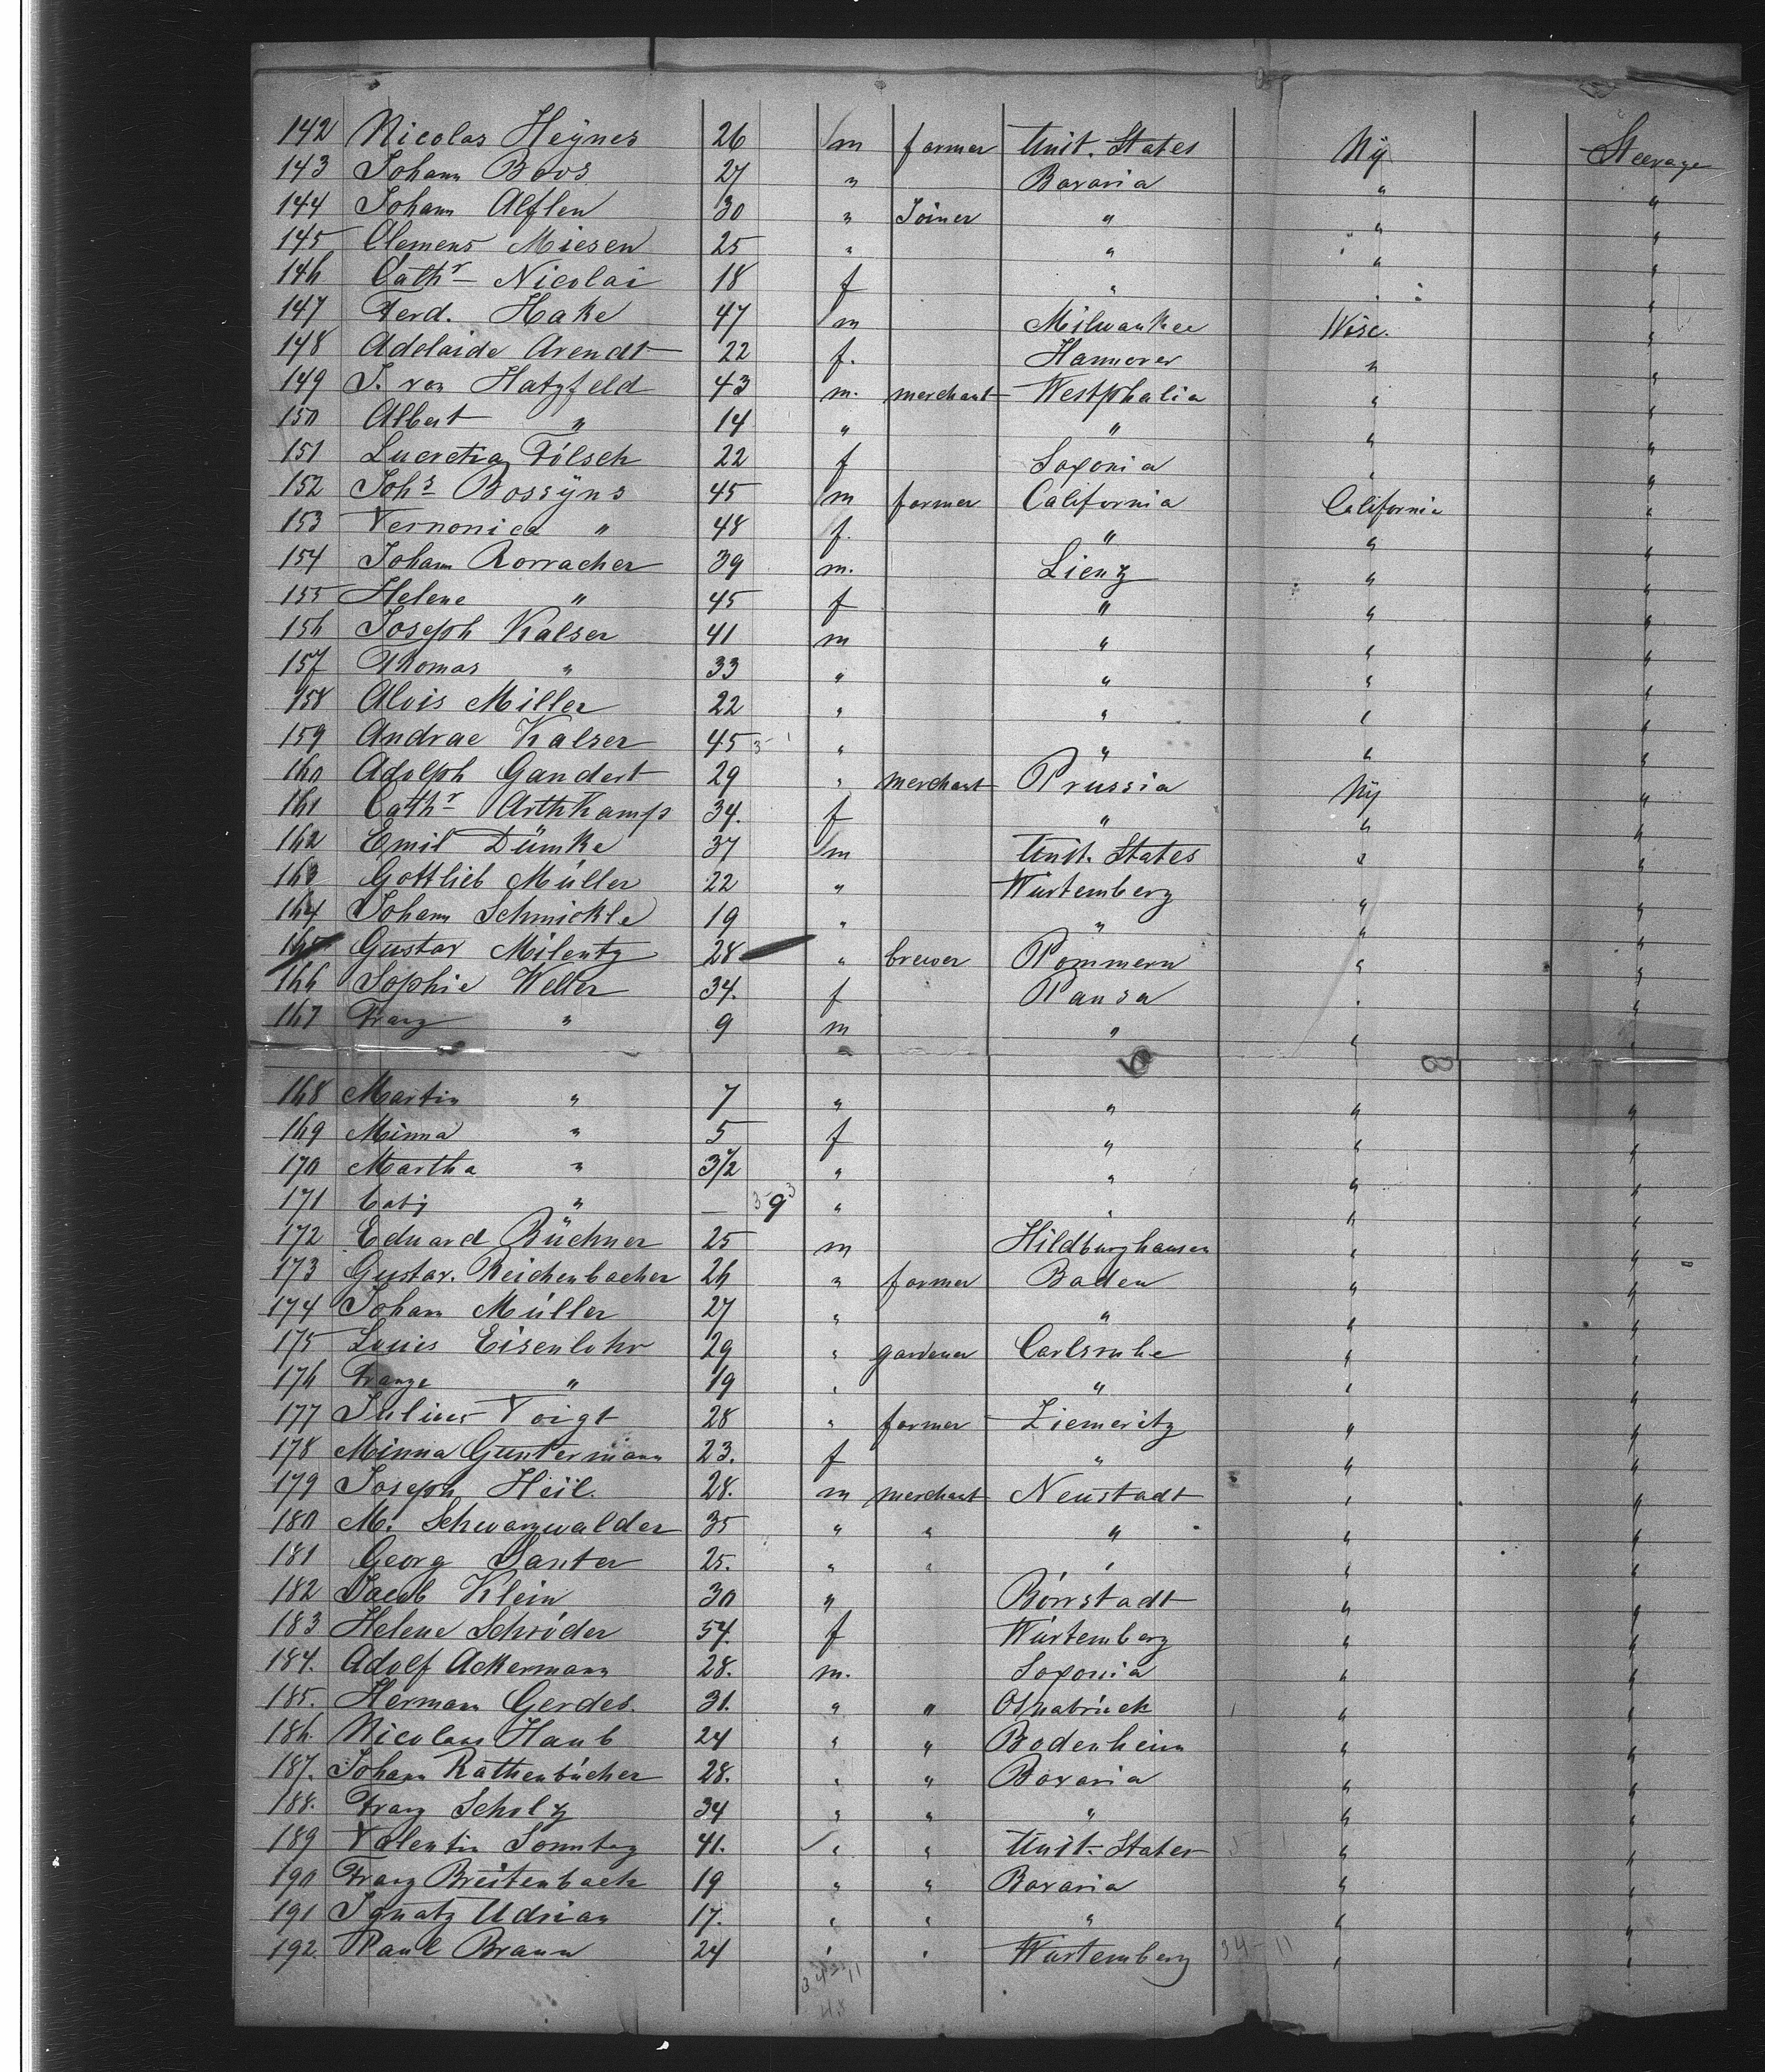 142 Nicolas Heÿnes 26 m farmer Unit. States NY Steerage
143 Johann Boos 27 " Bavaria " "
144 Johann Alflen 30 " Joiner " " "
145 Clemens Miesen 25 " " " "
146 Cathr Nicolai 18 f " " "
147 Ferd. Hake 47 m Milwaukee Wisc. "
148 Adelaide Arendt 22 f. Hannover " "
149 J. von Hatzfeld 43 m. merchant Westphalia " "
150 Albert " 14 " " " "
151 Lucretia Fölsch 22 f Saxonia " "
152 Johs Bossÿns 45 m farmer California California "
153 Vernonica " 48 f. " " "
154 Johann Rorracher 39 m. Lienz " "
155 Helene " 45 f " " "
156 Joseph Kalser 41 m " " "
157 Thomas " 33 " " " "
158 Alois Miller 22 " " " "
159 Andrae Kalser 45 " " " "
160 Adolph Gandert 29 " merchant Prussia NY "
161 Cathr Arthkamp 34. f " " "
162 Emil Dümke 37 m Unit. States " "
163 Gottlieb Müller 22 " Würtemberg " "
164 Johann Schmickle 19 " " " "
165 Gustav Milentz 28 " brewer Pommern " "
166 Sophie Welter 34. f Pansa " "
167 Franz " 9 m " " "
168 Martin " 7 " " " "
169 Minna " 5 f " " "
170 Martha " 3½ " " " "
171 Baby " — 9 " " " "
172 Eduard Büchner 25 m Hildburghausen " "
173 Gustav. Reichenbacher 26 " farmer Baden " "
174 Johann Müller 27 " " " "
175 Louis Eisenlohr 29 " gardener Carlsruhe " "
176 Franze " 19 " " " "
177 Julius Voigt 28 " farmer Ziemeritz " "
178 Minna Guntermann 23. f " " "
179 Joseph Heil. 28. m merchant Neustadt " "
180 M. Schwarzwalder 35 " " " " "
181 Georg Santer 25. " " " " "
182 Jacob Klein 30 " Börrstadt " "
183 Helene Schröder 54. f Würtemberg " "
184. Adolf Ackermann 28. m. Saxonia " "
185. Hermann Gerdes. 31. " " Osnabrück " "
186. Nicolaus Haub 24 " " Bodenheim " "
187. Johann Rathenbücher 28. " " Bavaria " "
188. Franz Scholz 34 " " " " "
189 Valentin Sonntag 41. " " Unit. States " "
190 Franz Breitenbach 19 " " Bavaria " "
191 Ignatz Udrian 17. " " " " "
192. Paul Braun 24 " " Würtemberg 34-11 " "